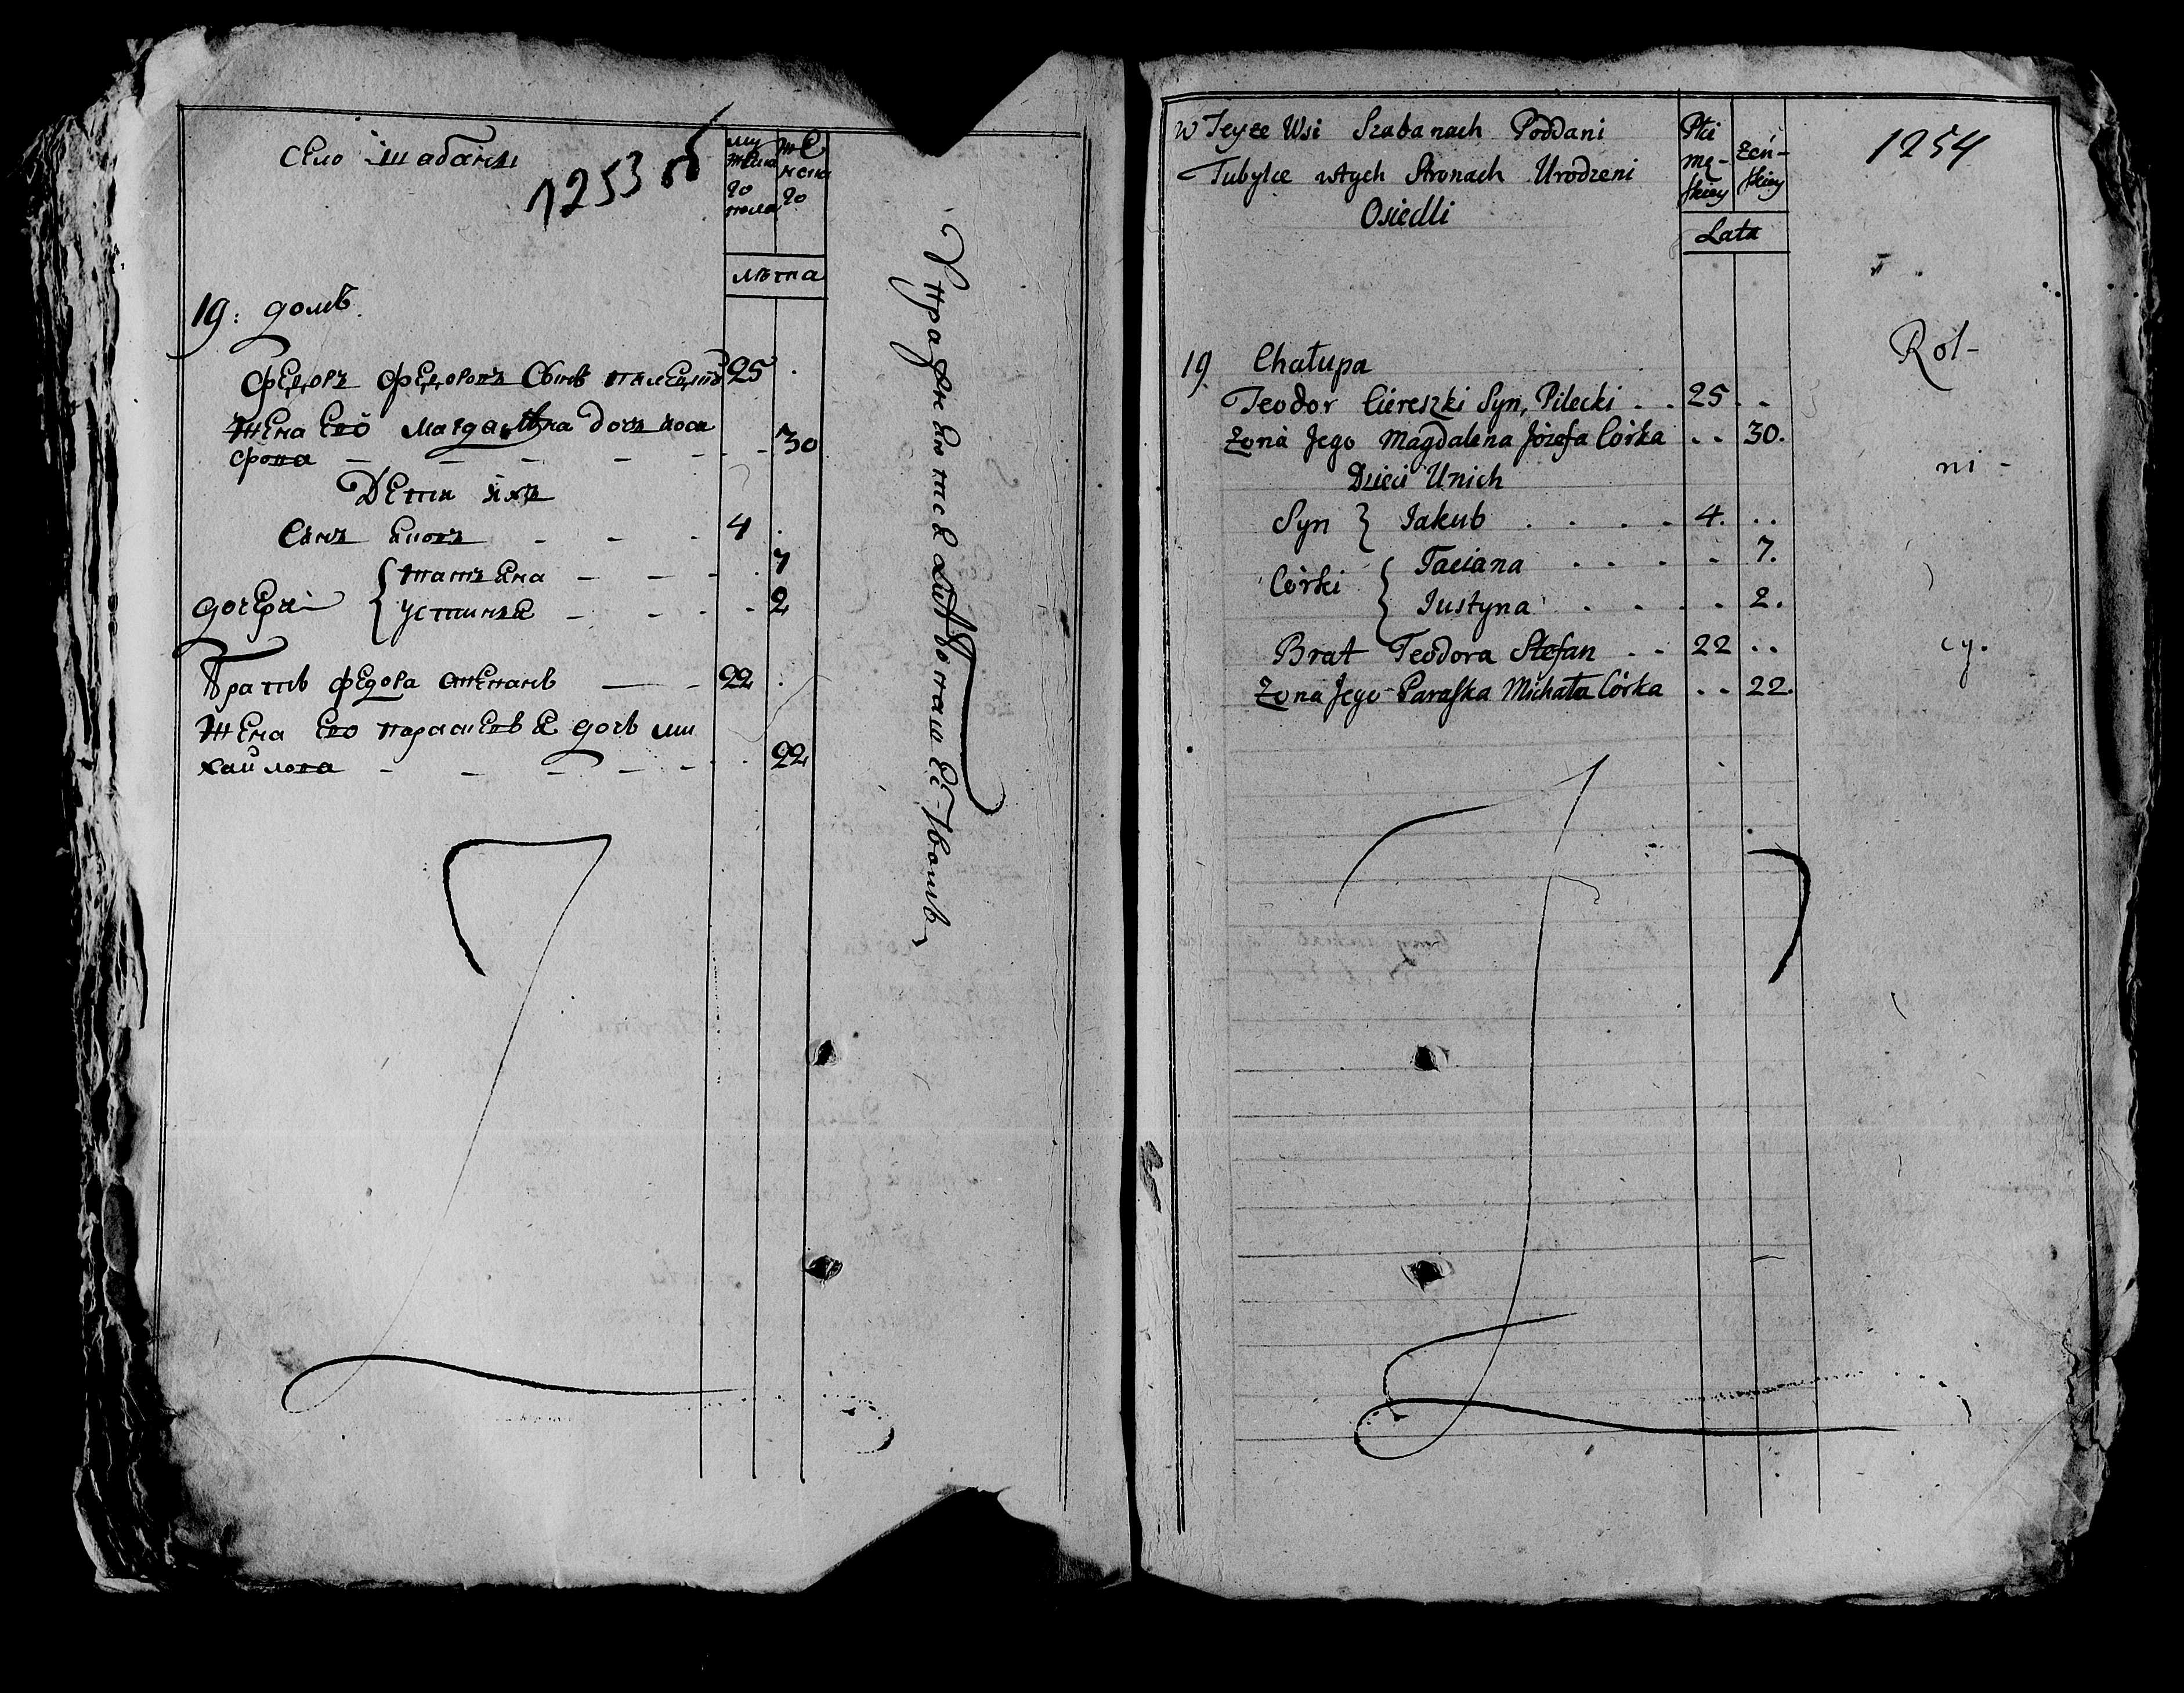 Село Шабани
1253 об
му
жеска
го
пола
же
неска
го
лѣта
19: домъ
Федоръ Федоровъ Сынъ пилецкій 25
Жена Его Магдалена дочь Иоси
фова - - - - - - 30
Дети ихъ
Синъ Яковъ - - - 4
дочери { татьяна - - - 7
устинья - - - 2
Братъ федора степанъ - - 22
Жена Его парасковья дочь ми
хайлова - - - - - - 22
Упражняются в хлѣбопашестволъ
w Teyże Wsi Szabanach Poddani
Tubylce wtych Stronach Urodzeni
Osiedli
Płci
mę-
skiey
żeń-
skiey
Lata
1254
19 Chałupa
Teodor Ciereszki Syn, Pilecki . . 25 . .
Żona Jego Magdalena Józefa Córka . . 30.
Dzieci Unich
Syn } Jakub . . . . 4. . .
Córki { Taciana . . . . . 7.
Justyna . . . . . 2.
Brat Teodora Stefan . . 22 . .
Żona Jego Paraska Michała Córka . . 22.
Rol-
ni-
cy.